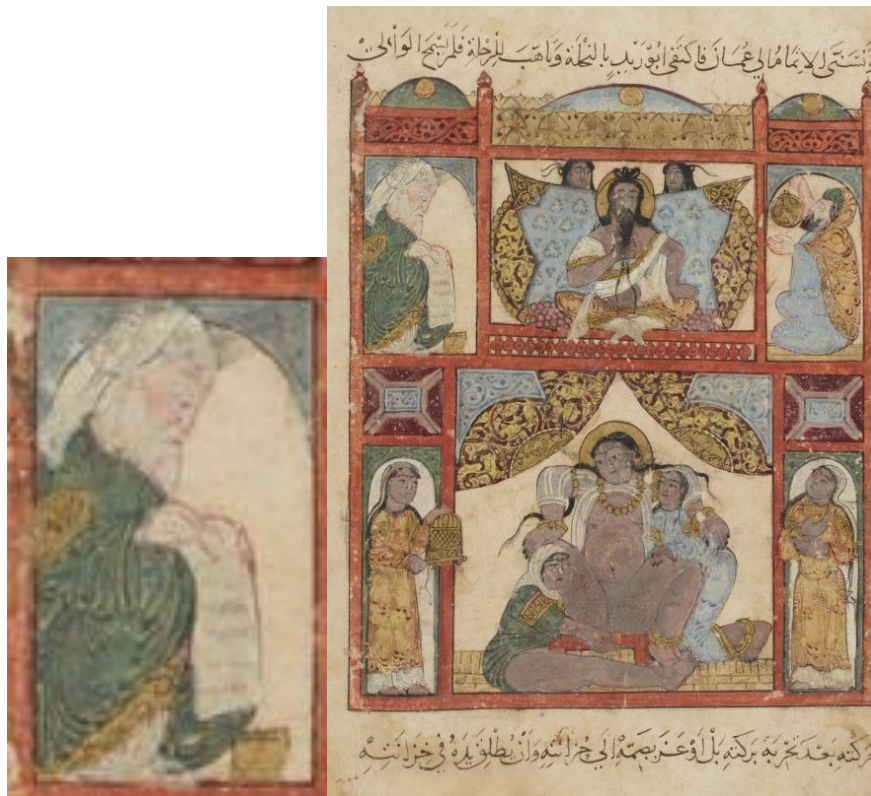 وتسنى الاتمام الي عمان فاكتفى ابو زيد بالنحلة وتاهب للرحلة فلم يسمح الوالي
بحركته بعد تجربة بركته بل اوعز بضمه الي حزانته وان يطلق يده في خزانته